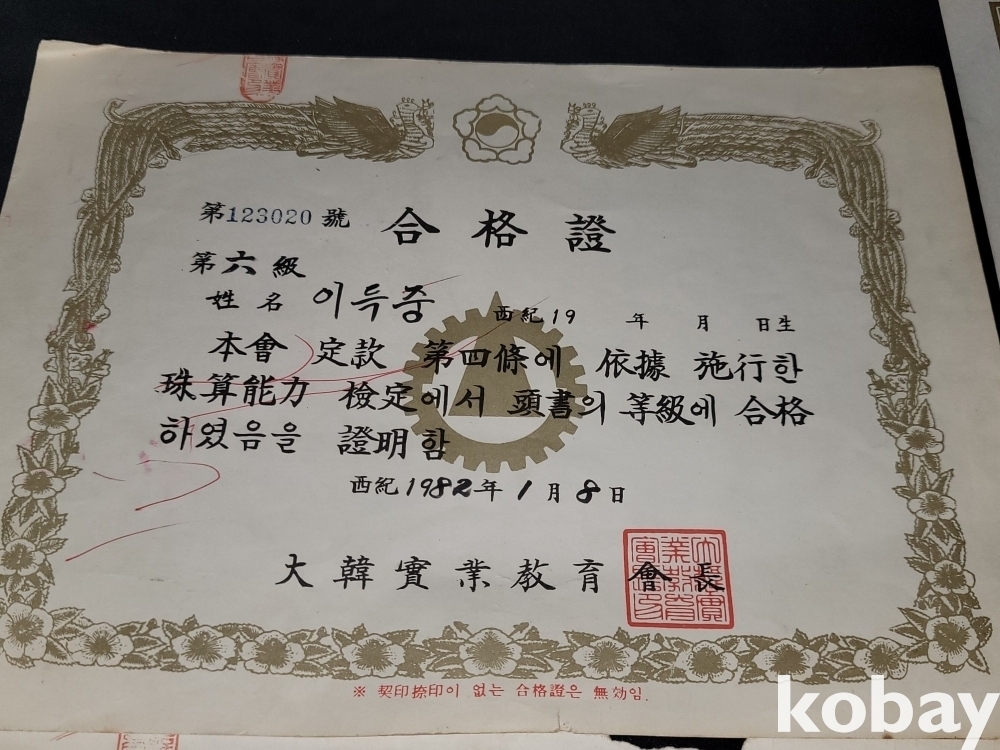 第123020號
合格證
第六級
姓名 이득중 西紀19 年 月 日生
本會 定款 第四條에 依據 施行한
珠算能力 檢定에서 頭書의 等級에 合格
하였음을 證明함
西紀1982年1月8日
大韓實業教育會長
※ 契印捺印이 없는 合格證은 無効임.
kobay